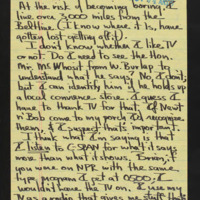 At the risk of becoming boring, I
live over 3,000 miles from the
Beltline (I know where it is, have
gotten lost getting off it).
I don't know whether I like TV
or not. Do I need to see the Hon.
Mr. McWhosit from W. Burlap to
understand what he says? No, I don't,
but I can identify him if he holds up
a local convenience store. I guess I
have to thank TV for that. If Newt
n' Bob come to my porch I'd recognize
them, & I suspect that's major
I think I'm saying is that
I listen to C-SPAN for what it says
more than what it shows. Brian, if
you were on NPR with the same
type program I at 0500 I
wouldn't have the TV on. I use my
that gives me stuff that's